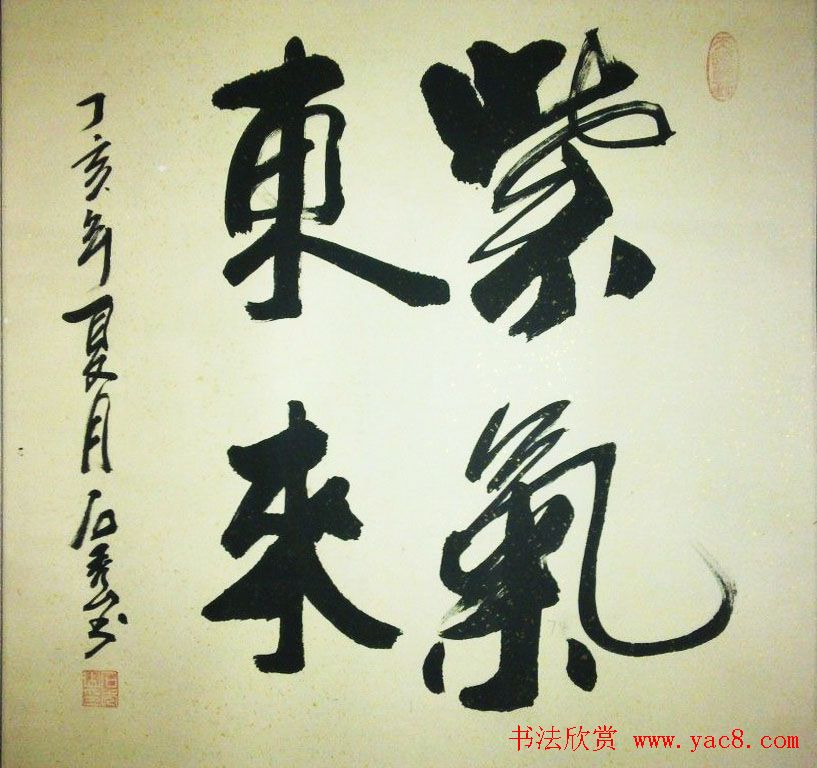 紫氣
東來
丁亥年夏月石秀山书
书法欣赏 www.yac8.com